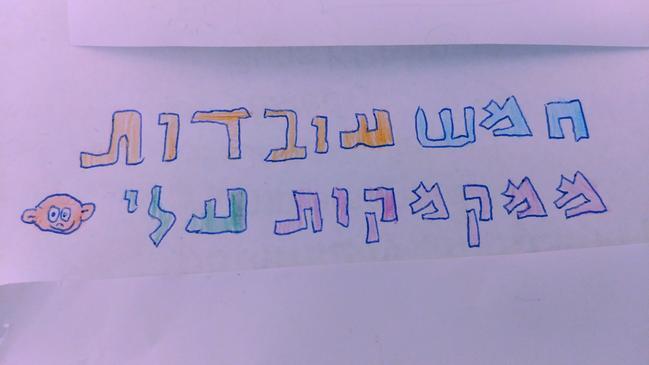 חמש עובדות
ממקמקות עלי